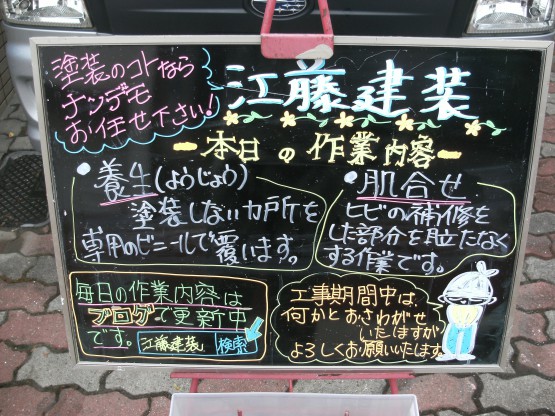 塗装のコトなら
ナンデモ
お任せ下さい!
江藤建装
本日の作業内容
・養生(ようじょう)
塗装しないカ所を
専用のビニールで覆います。
・肌合せ
ヒビの補修を
した部分を目立たなく
する作業です。
毎日の作業内容は
ブログで更新中
です。
江藤建装 検索
工事期間中は、
何かとおさわがせ
いたしますが
よろしくお願いいたします